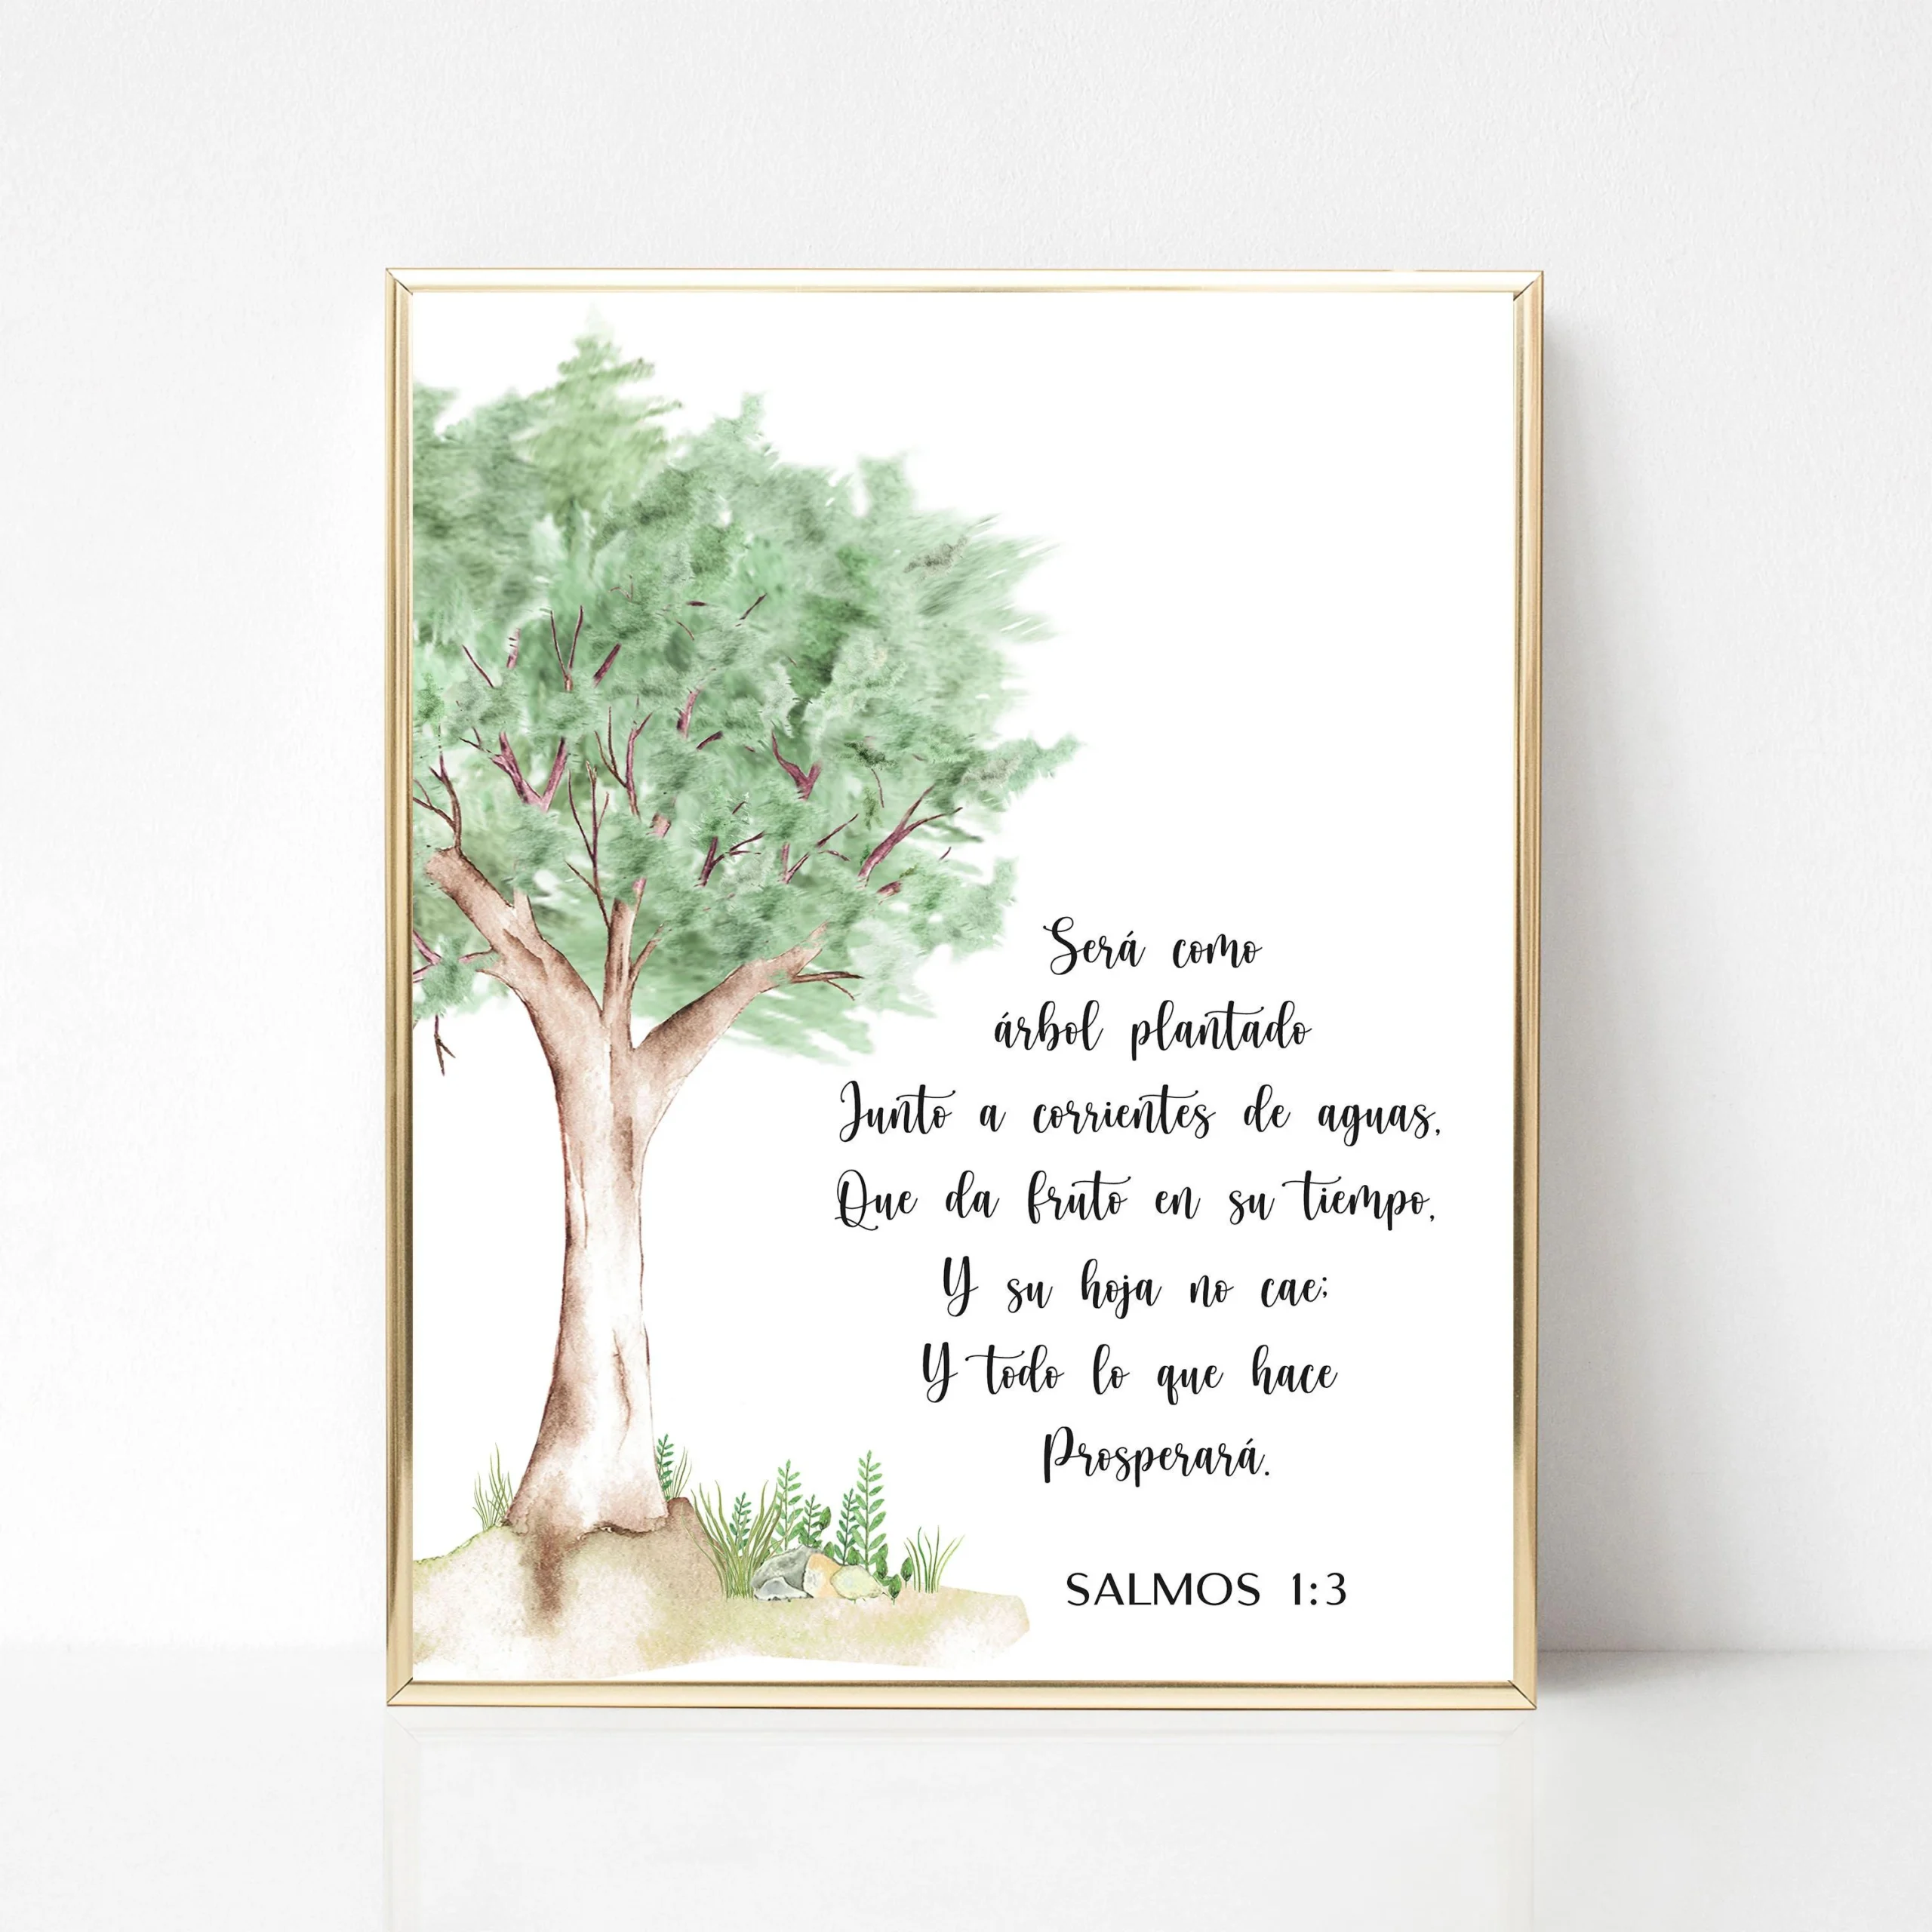 Será como
árbol plantado
Junto a corrientes de aguas,
Que da fruto en su tiempo,
Y su hoja no cae;
Y todo lo que hace
Prosperará.
SALMOS 1:3